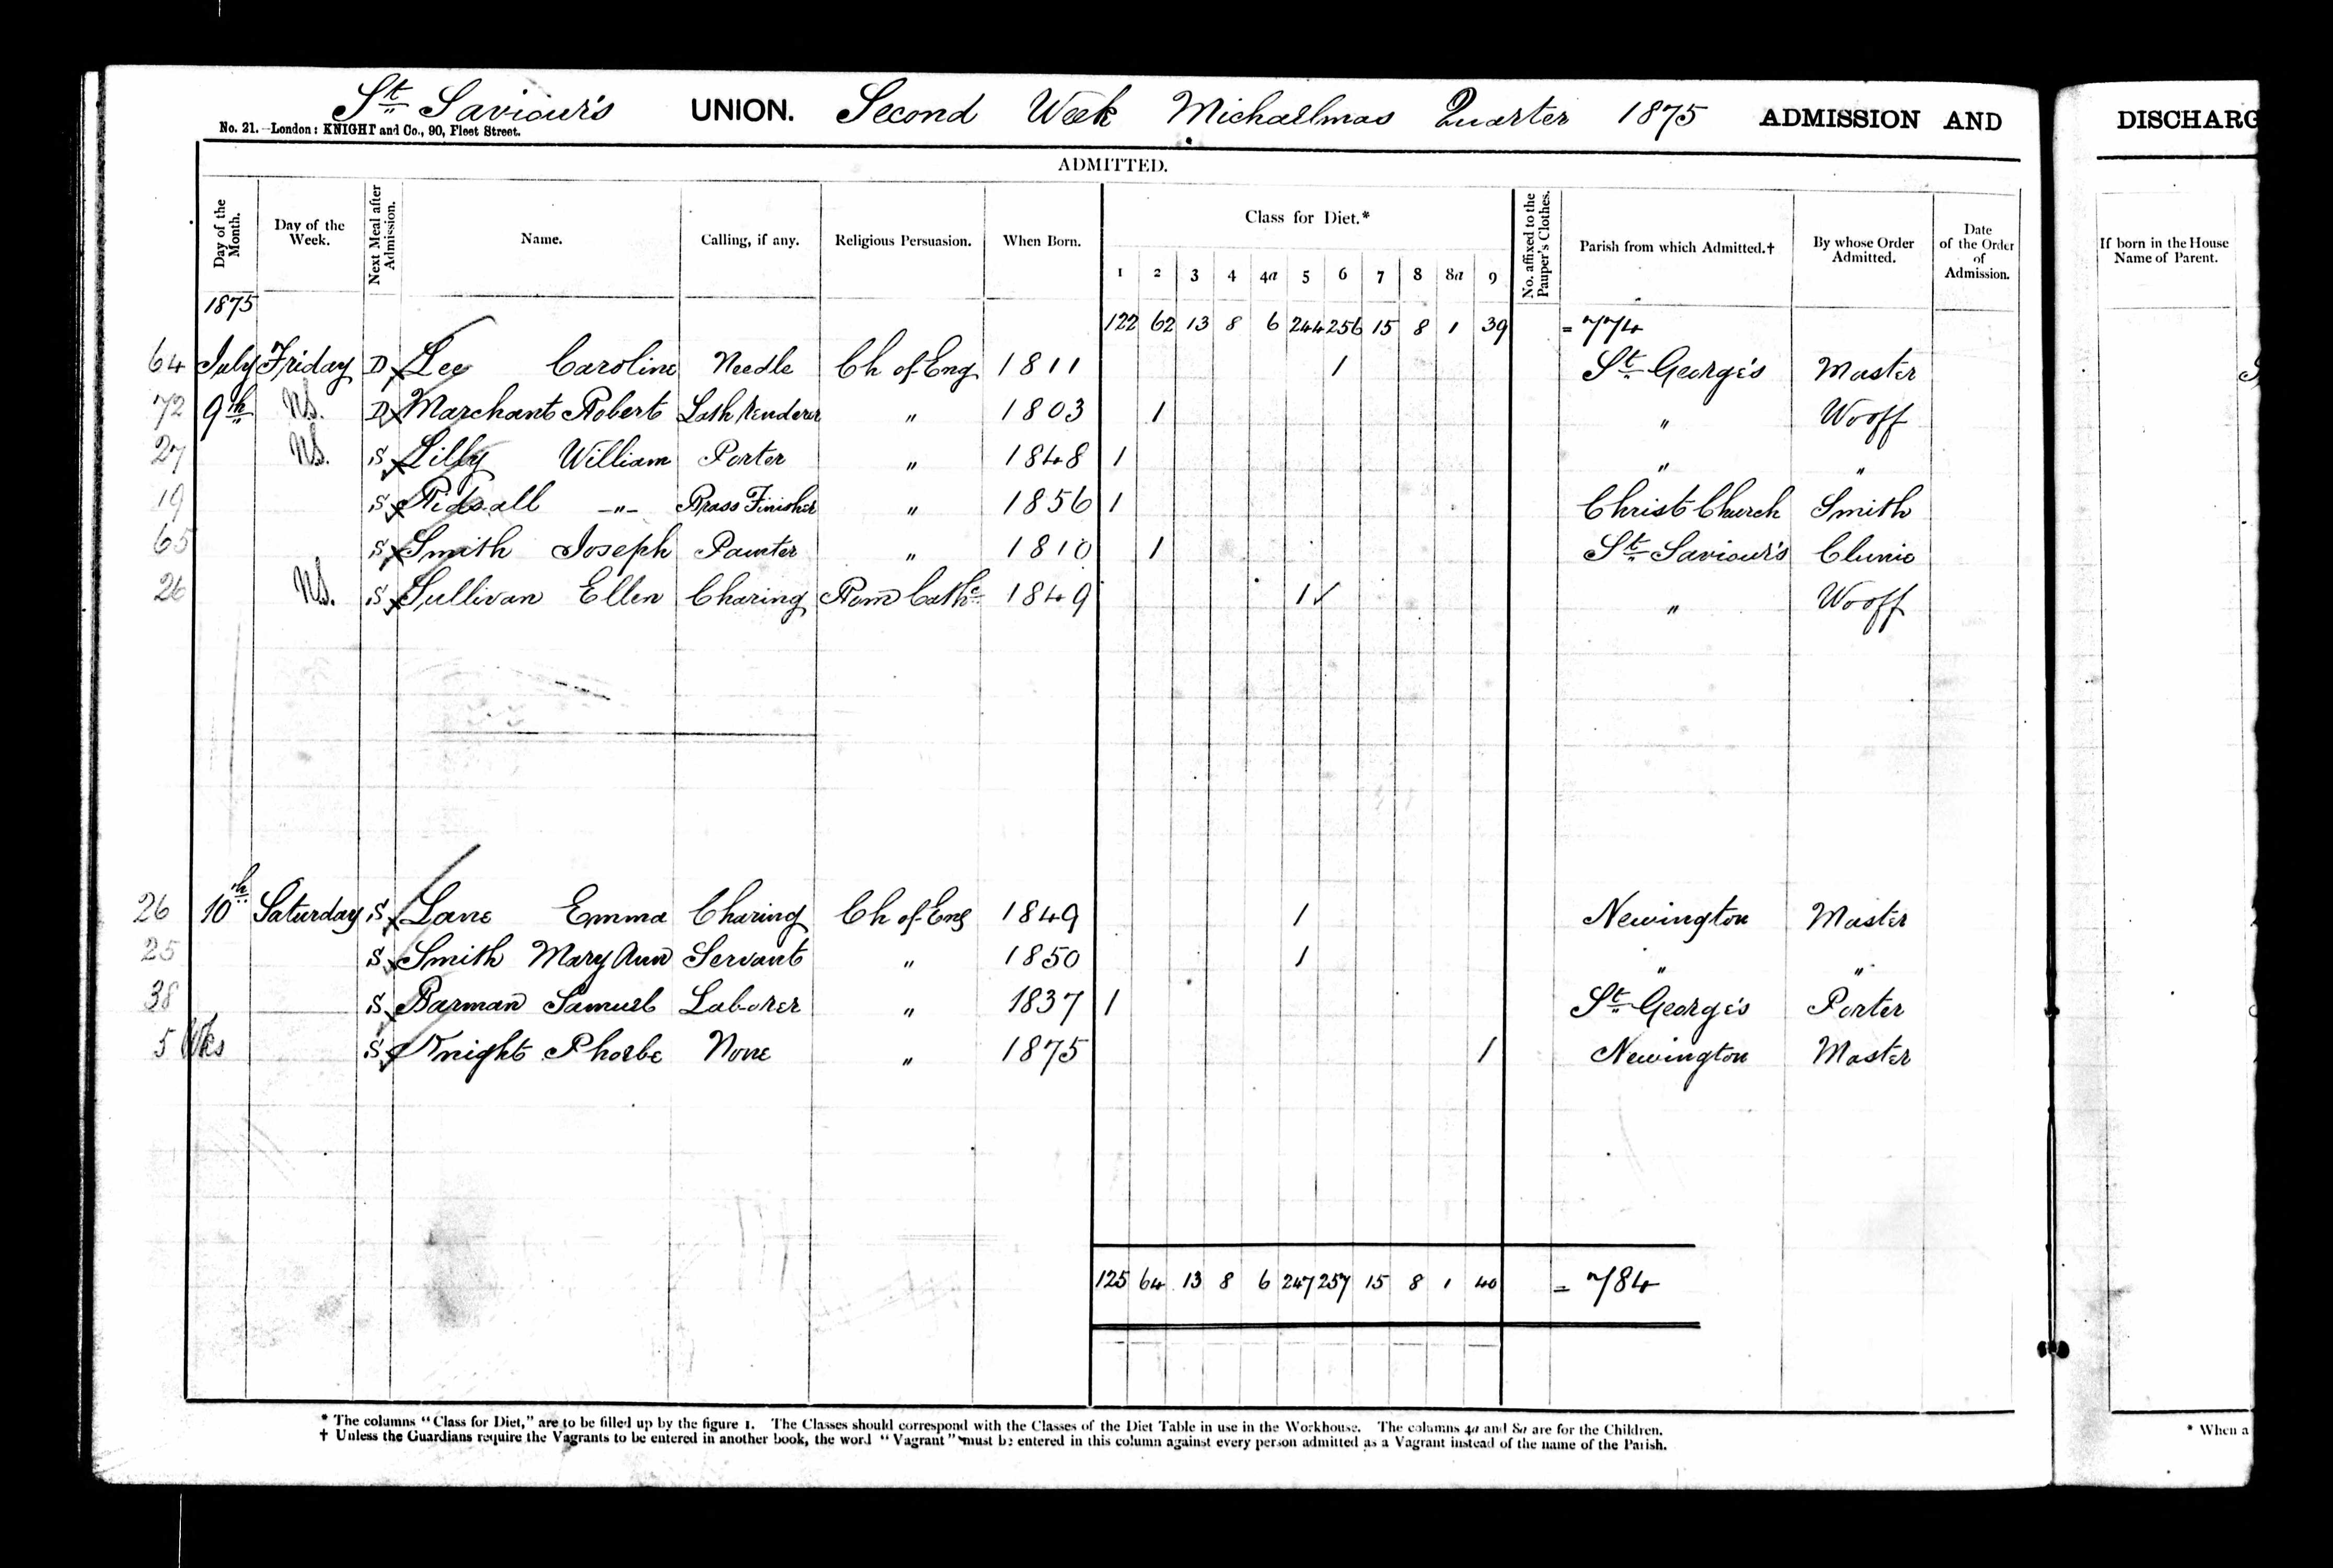 St. Saviour's UNION. Second Week Michaelmas Quarter 1875 ADMISSION AND DISCHARG
No. 21.—London: KNIGHT and Co., 90, Fleet Street.
ADMITTED.
Day of the Month. Day of the Week. Next Meal after Admission. Name. Calling, if any. Religious Persuasion. When Born. Class for Diet.* No. affixed to the Pauper's Clothes. Parish from which Admitted.† By whose Order Admitted. Date of the Order of Admission. If born in the House Name of Parent.
1 2 3 4 4a 5 6 7 8 8a 9
1875
122 62 13 8 6 244 256 15 8 1 39 = 774
64 July Friday D Lee Caroline Needle Ch of Eng 1811 1 St. George's Master
72 9th NS. D Marchant Robert Lath Renderer " 1803 1 " Wooff
27 NS. S Lilly William Porter " 1848 1 " "
19 S Ridsall -"- Brass Finisher " 1856 1 Christ Church Smith
65 S Smith Joseph Painter " 1810 1 St. Saviour's Clunie
26 NS. S Sullivan Ellen Charing Rom Cathc 1849 1 ✓ " Wooff
26 10th Saturday S Lane Emma Charing Ch of Eng 1849 1 Newington Master
25 S Smith Mary Ann Servant " 1850 1 " "
38 S Barman Samuel Laborer " 1837 1 St. George's Porter
5 Wks S Knight Phoebe None " 1875 1 Newington Master
125 64 13 8 6 247 257 15 8 1 40 = 784
* The columns "Class for Diet," are to be filled up by the figure 1. The Classes should correspond with the Classes of the Diet Table in use in the Workhouse. The columns 4a and 8a are for the Children.
† Unless the Guardians require the Vagrants to be entered in another book, the word "Vagrant" must be entered in this column against every person admitted as a Vagrant instead of the name of the Parish.
* When a